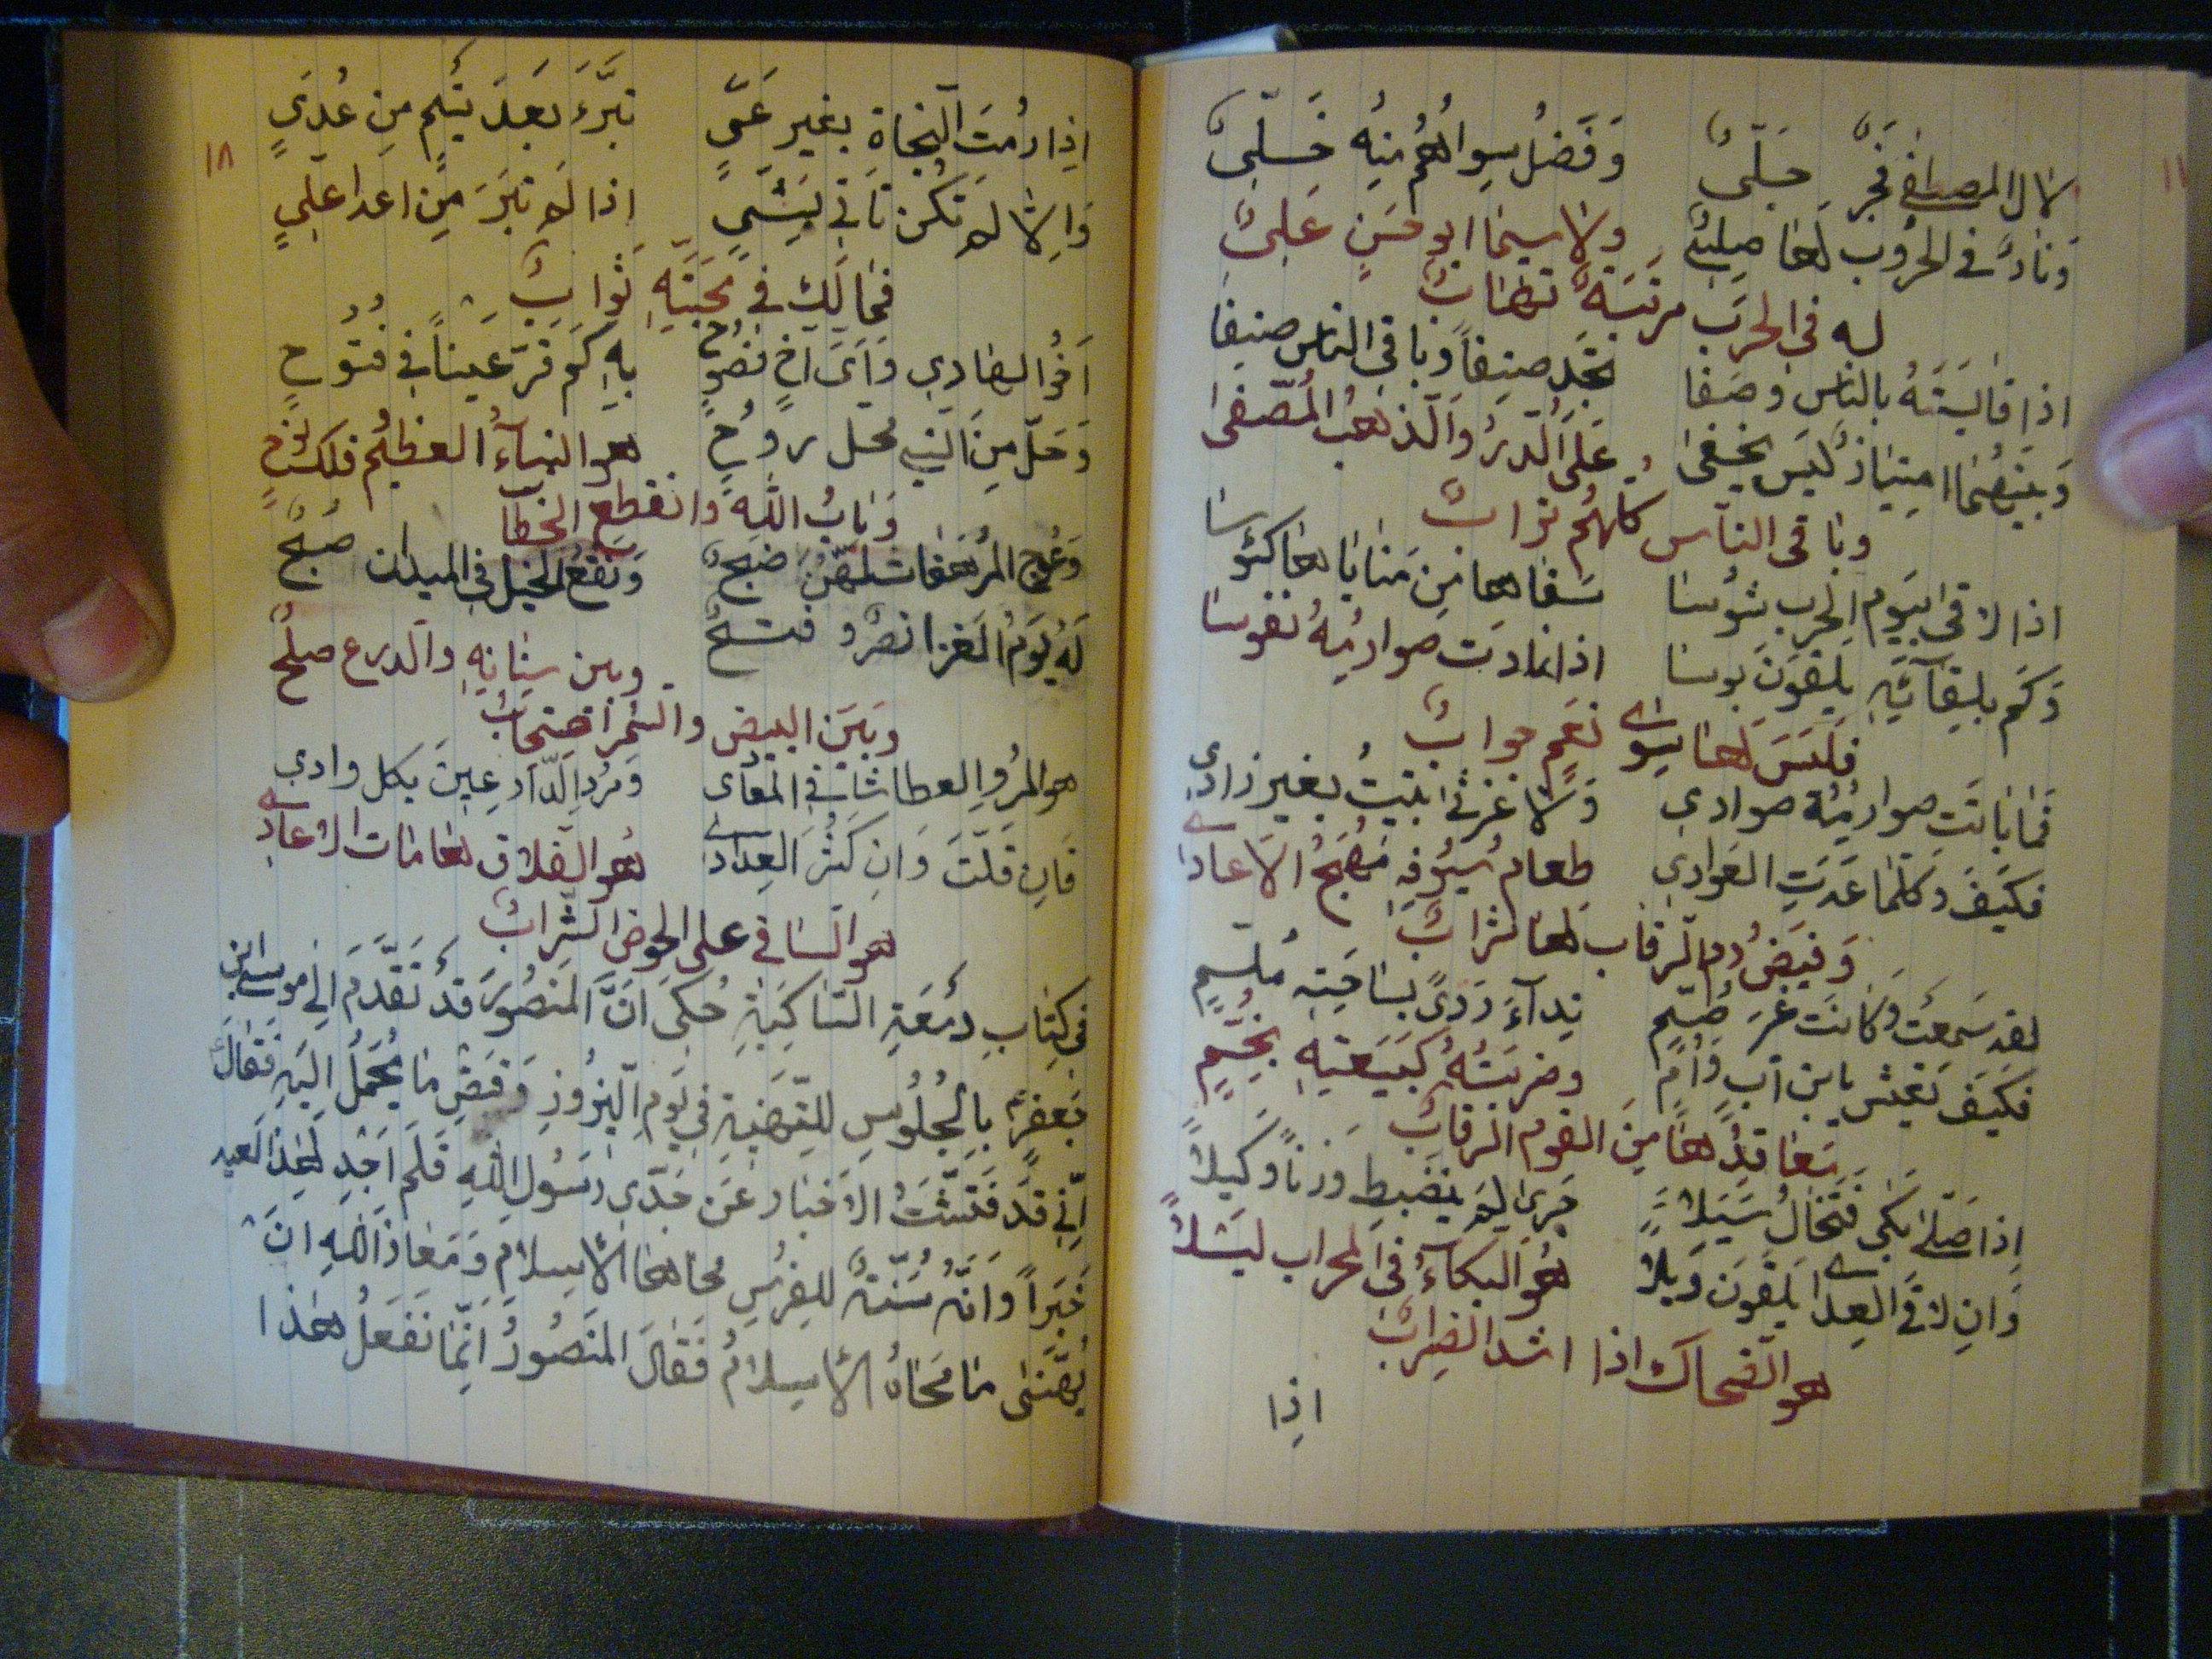 لال المصطفى فخرٌ جليٌّ وَفَضلُ سِواهُمُ مِنهُ خَلِيٌّ
وَنارٌ في الحُرُوبِ لها صِليٌّ ولا سيما ابو حَسَنٍ عَلِيٌّ
له فى الحرب مرتبةٌ تهابٌ
اذا قايَستَهُ بالناسِ وصفا تجد صنفاً وباقى الناس صنفا
وَبينهُما امتيازٌ لَيسَ يخفى على الدرُ والذهب المُصفى
وباقى الناس كلهُم ترابٌ
اذا لاقى بيومِ الحرب شوسا سقاها مِن منايا ها كئوسا
وَكَم بلِقآئِهِ يلقَونَ بوسا اذا نادت صوارِمُهُ نفوسا
فَليسَ لها سِوى نعم جوابٌ
فَما باتت صوارِمُهُ صوادي وَلا غرثى تبيتُ بغير زادى
فكيفَ وكلما غدَتِ الغوادي طعام سُيُوفِهِ مُهَجُ الاعادى
وَفيضُ دم الرقاب لها شرابٌ
لقد سَمِعَت وَكانَت غَيرَ صُمّمٍ نِدآءَ رَدىً بساحتِهِ مُلمّمٍ
فكيفَ تعيش يا بن ابٍ وَاُمٍّ وضربتُهُ كبَيعَتِهِ بخُمّمٍ
معاقدُها مِنَ القوم الرقابُ
اِذا صَلّى بَكى فَتخالُ سَيلاً جَرى لم ينضبط وزناً وكيلاً
وَاِن لاقَى العِدا يلقَونَ وَيلا هُو البكآءُ فى المحراب ليلاً
هو الضحاك اذا اشتد الضرابُ
اذا
١٨
اِذا رُمتَ النجاة بغير عَىٍّ تبَرَّءَ بَعدَ تَيمٍ مِن عُدَيٍ
وَاِلا لم تكُن تاتى بِشَىءٍ اذا لم تبرَ مِن اعدا علَيٍ
فمالَك في مَحَبَّتِهِ ثَوابٌ
اَخُو الهادي وَاَىَّ اَخٍ نصُوحٍ بِهِ كَم قَرَّ عَيناً في فتُوحٍ
وَحَلّ مِنَ النبي محل روُحٍ هو النباءُ العظيُم وفلك نُوحٍ
وَبابُ اللَّهِ وانقطع الخطاب
وَعُوج المُرهَفات لَهُنّ ضبحٌ وَنقعُ الخيل في الميدان صُبحٌ
لَهُ يَومَ الغزا نصرٌ و فتحٌ وبين سِنانِهِ والدرع صلحٌ
وَبَينَ البيض والسُمر اصتحابٌ
هو المُروِ العطاشا في المَعادى وَمُردِ الدّارِعينَ بكل وادي
فَاِن قَلّت وَاِن كَثُرَ العِدادى هُو الفلاق هامات الاعادى
هو الساقى على الحوض الشرابُ
في كِتابِ دمعَةِ السّاكِبَةِ حُكىَ اَنَّ المَنصُورَ قد تَقدَّمَ الى موسى ابن
جعفرٍ بِالجُلُوسِ للتهنيةِ في يَومِ النيرُوزِ وَقبضِ ما يُحمَلُ اليَهِ فَقالَ
اِنّي قَد فَتّشتُ الاَخبارَ عَن جَدّي رَسُولِ اللَّهِ فَلَم اَجِد لِهَذا العيد
خَبَراً وَاَنَّهُ سُنّةٌ للفُرسِ محاها الاِسلامُ وَمَعاذَ اللَّهِ اَن
يُهَنّى ما مَحاهُ الاِسلامُ فَقالَ المَنصُورُ اِنّما نَفعَلُ هذا